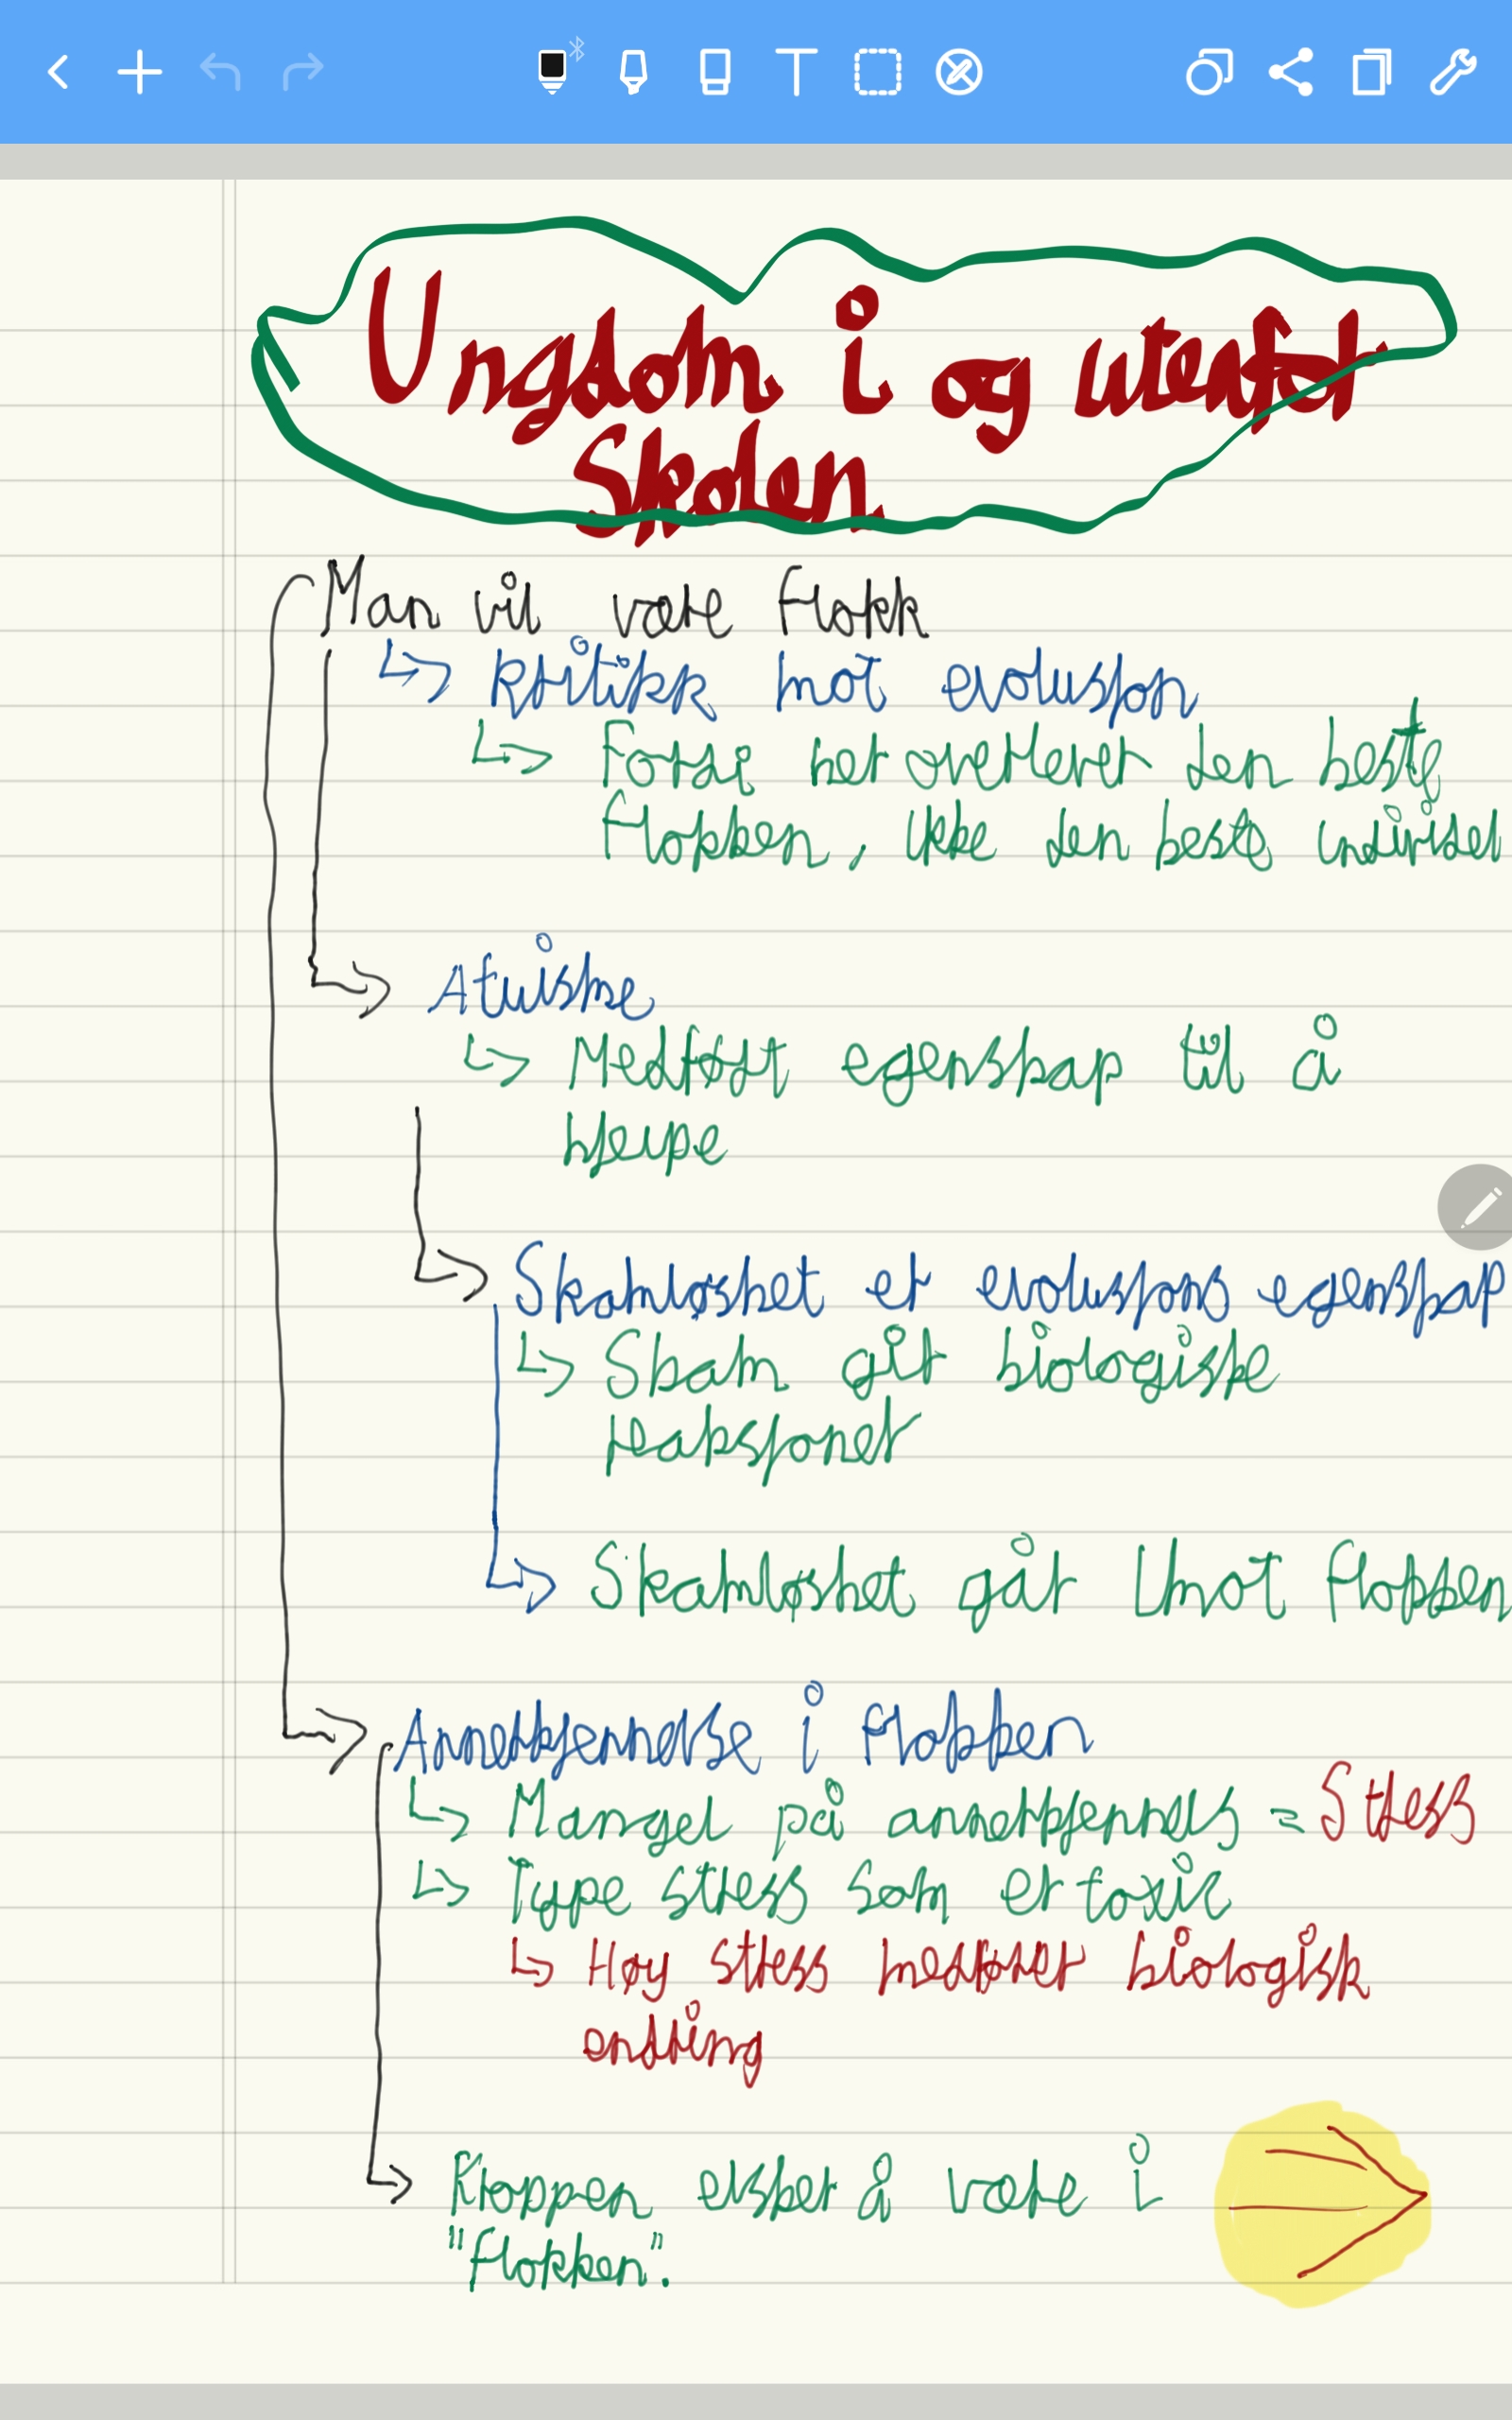 Ungdom i og utenfor
Skolen
Man vil være Flokk
Kritikk mot evolusjon
Forsk: her overlever den beste
Flokken, ikke den beste individet
Medfødt egenskap til å
hjelpe
Skamløshet er evolusjons egenskap
Skam gir biologiske
reaksjoner
Skamløshet går imot flokken
Annerkjennelse i flokken
Mangel på annerkjennels = Stress
Type stress som er toxic
Høy stress medfører biologisk
endring
Kroppen elsker å være i
"flokken".